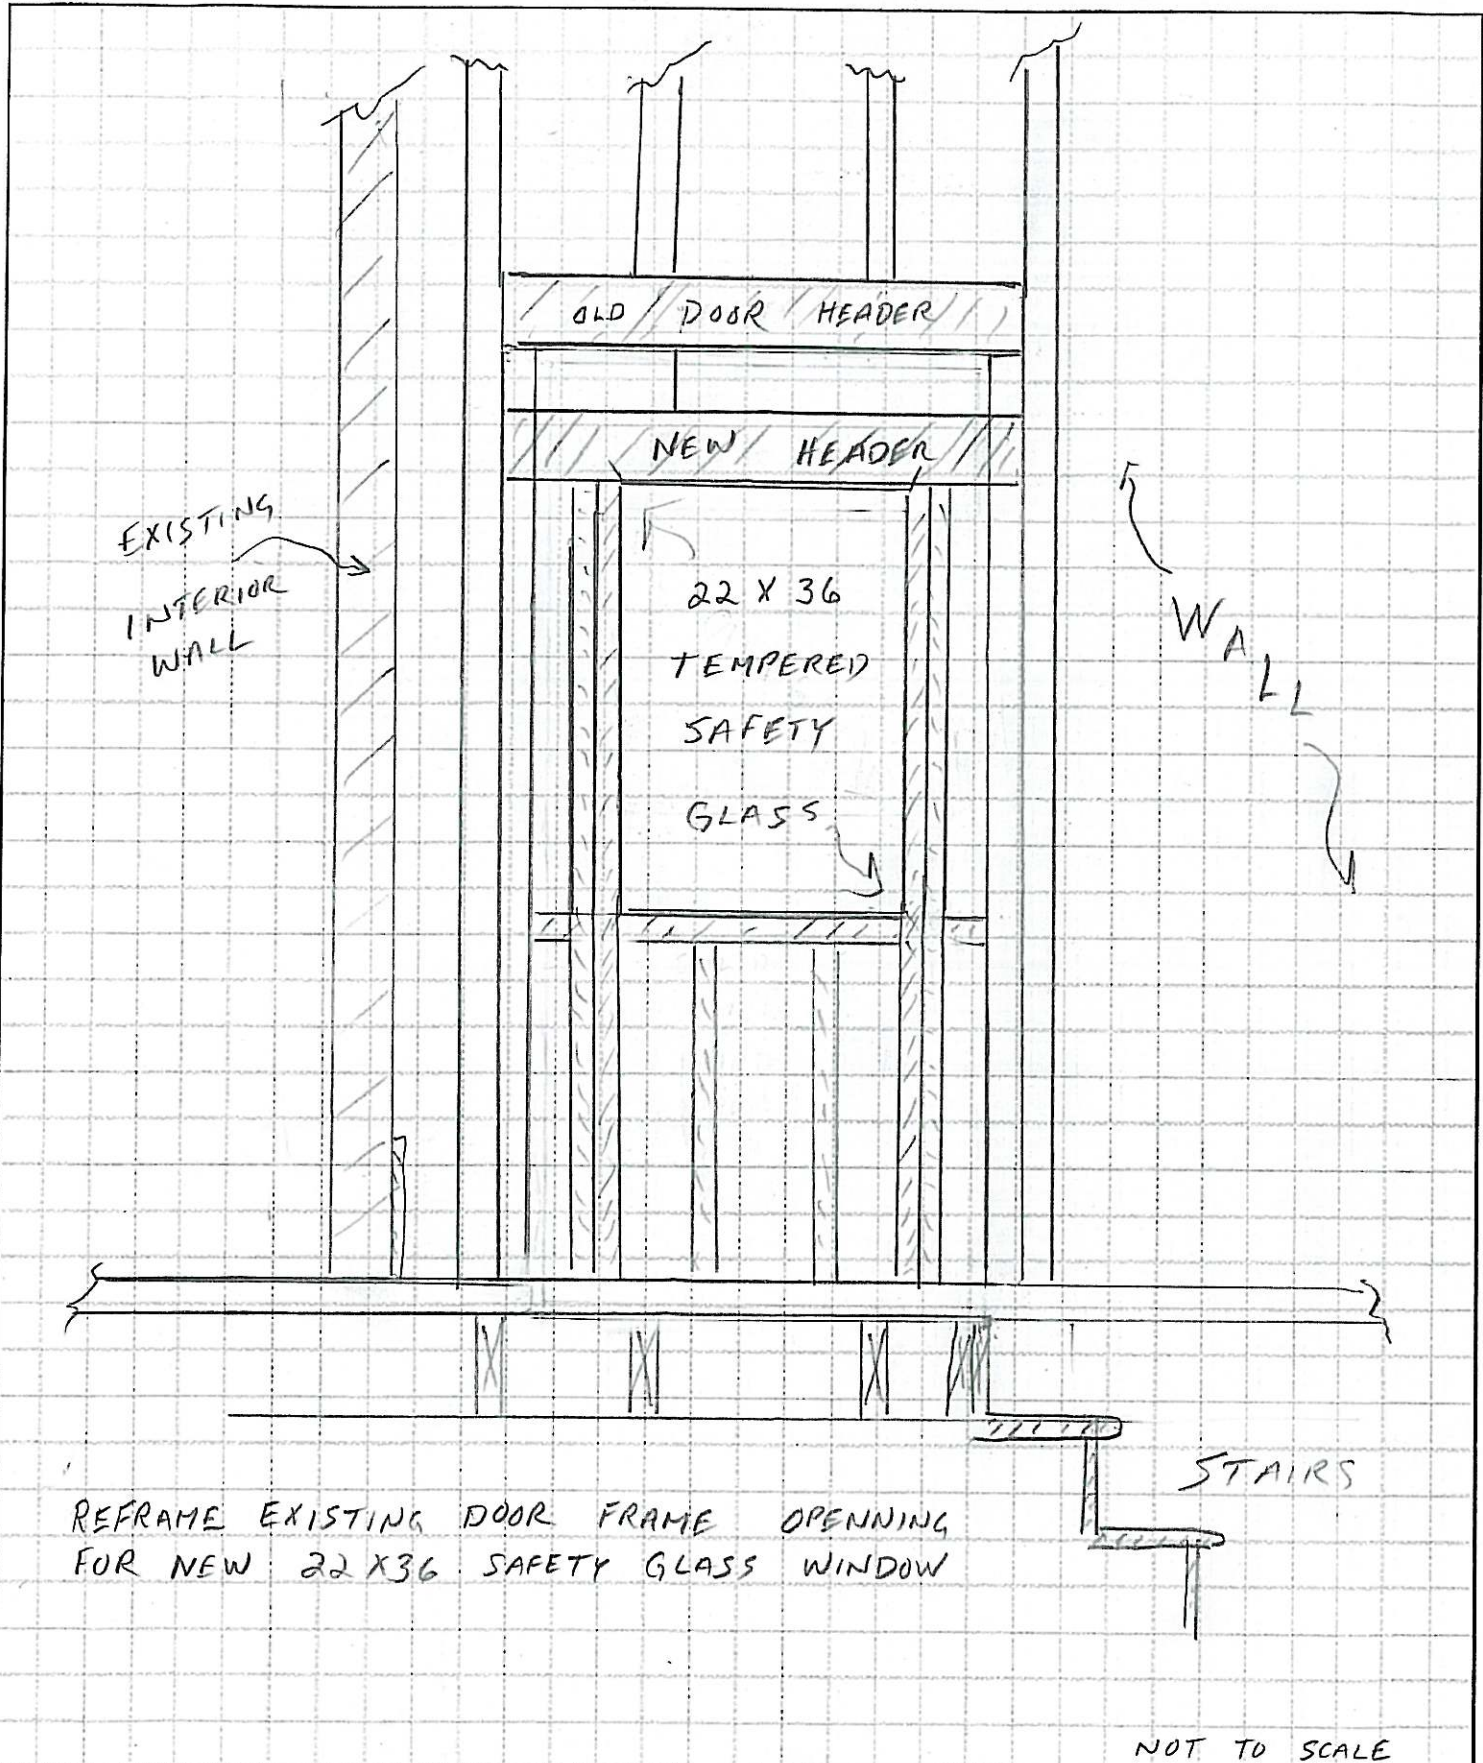 OLD DOOR HEADER
NEW HEADER
EXISTING
INTERIOR
WALL
22 X 36
TEMPERED
SAFETY
GLASS
WALL
STAIRS
REFRAME EXISTING DOOR FRAME OPENNING
FOR NEW 22 X36 SAFETY GLASS WINDOW
NOT TO SCALE